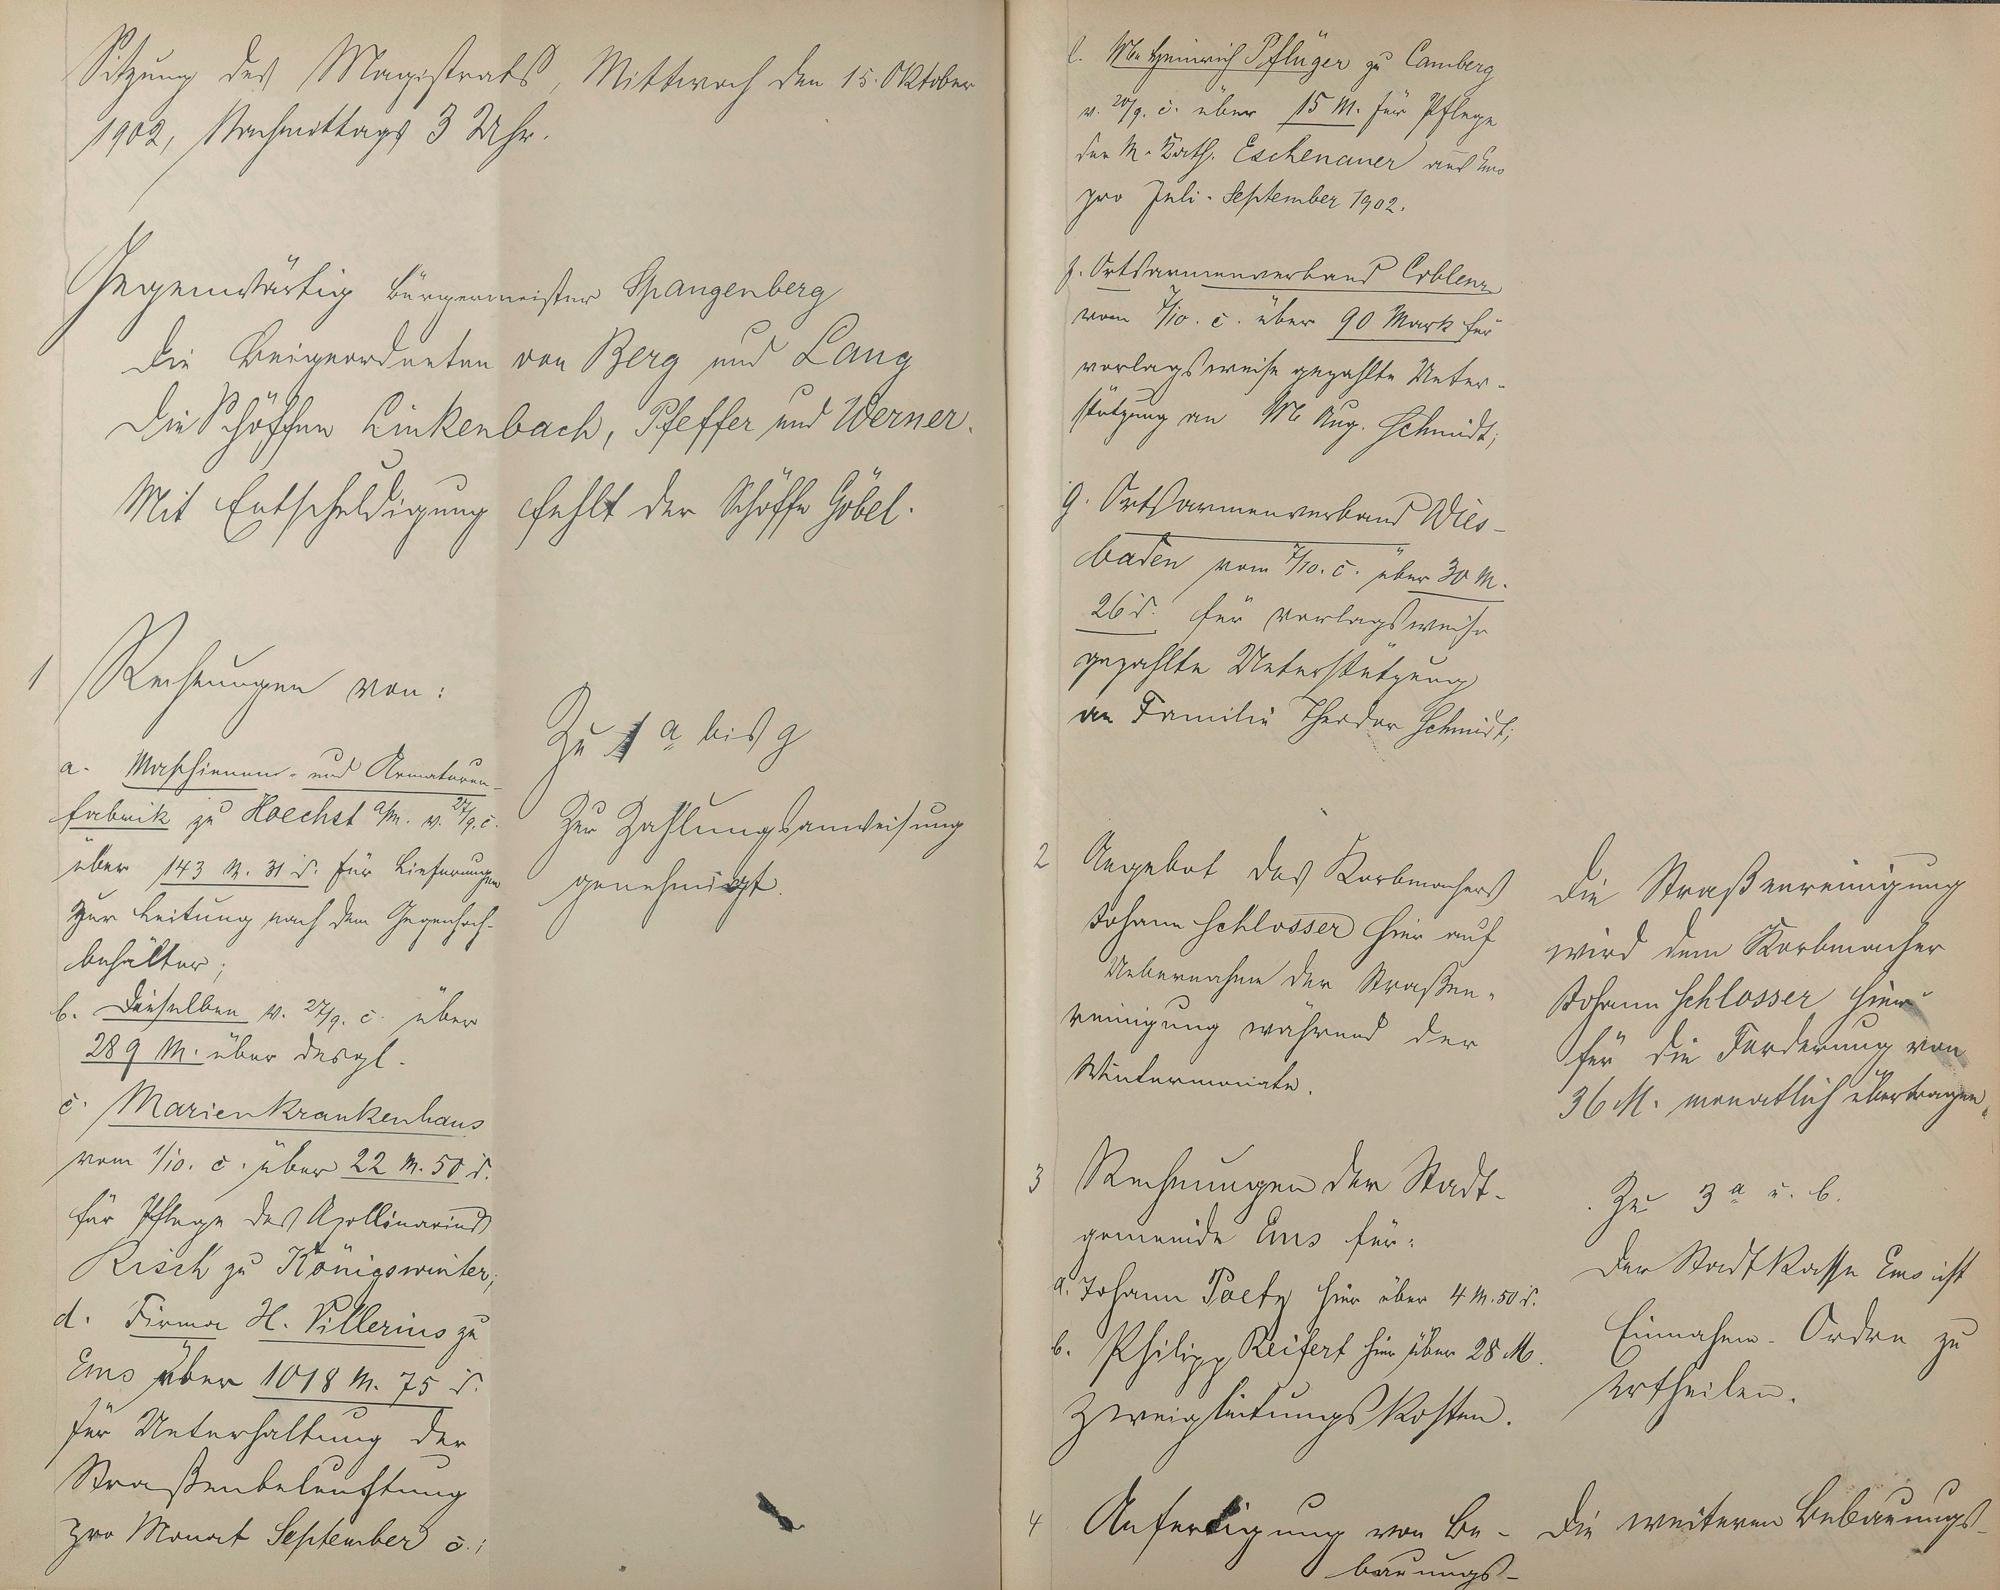 Sitzung des Magistrats, Mittwoch den 15. Oktober
1902, Nachmittags 3 Uhr.
Gegenwärtig Bürgermeister Spangenberg
Die Beigeordneten von Berg und Lang
Die Schöffen Linkenbach, Pfeffer und Werner.
Mit Entschuldigung fehlt der Schöffe Göbel.
1 Rechnungen von:
a. Maschienen- und Armaturen-
fabrik zu Hoechst a/M. v. 27/9. c.
über 143 M. 31 d. für Lieferungen
zur Leitung nach dem Gegenhoch-
behälter;
b. Dieselben v. 27/9. c. über
289 M. über desgl.
c. Marienkrankenhaus
vom 1/10. c. über 22 M. 50 d.
für Pflege des Apollinarius
Risch zu Königswinter;
d. Firma H. Villerius zu
Ems über 1018 M. 75 d.
für Unterhaltung der
Straßenbeleuchtung
pro Monat September c.;
Zu 1 a bis g
Zur Zahlungsanweisung
genehmigt.
e. Heinrich Pflüger zu Camberg
v. 20/9. c. über 15 M. für Pflege
der M. Kath. Eschenauer aus Ems
pro Juli-September 1902.
f. Ortsarmenverband Coblenz
vom 7/10. c. über 90 Mark für
vorlagsweise gezahlte Unter-
stützung an Aug. Schmidt;
g. Ortsarmenverband Wies-
baden vom 7/10. c. über 30 M.
26 d. für vorlagsweise
gezahlte Unterstützung
an Familie Theodor Schmidt;
2 Angebot des Korbmachers
Johann Schlosser hier auf
Uebernahme der Straßen-
reinigung während der
Wintermonate.
Die Straßenreinigung
wird dem Korbmacher
Johann Schlosser hier
für die Forderung von
36 M. monatlich übertragen.
3 Rechnungen der Stadt-
gemeinde Ems für:
a. Johann Paety hier über 4 M. 50 d.
b. Philipp Reifert hier über 28 M.
Zweigleitungskosten.
Zu 3 a u. b.
Der Stadtkasse Ems ist
Einnahme-Ordre zu
ertheilen.
4 Anfertigung von Be-
bauungs-
Die weiteren Bebauungs-